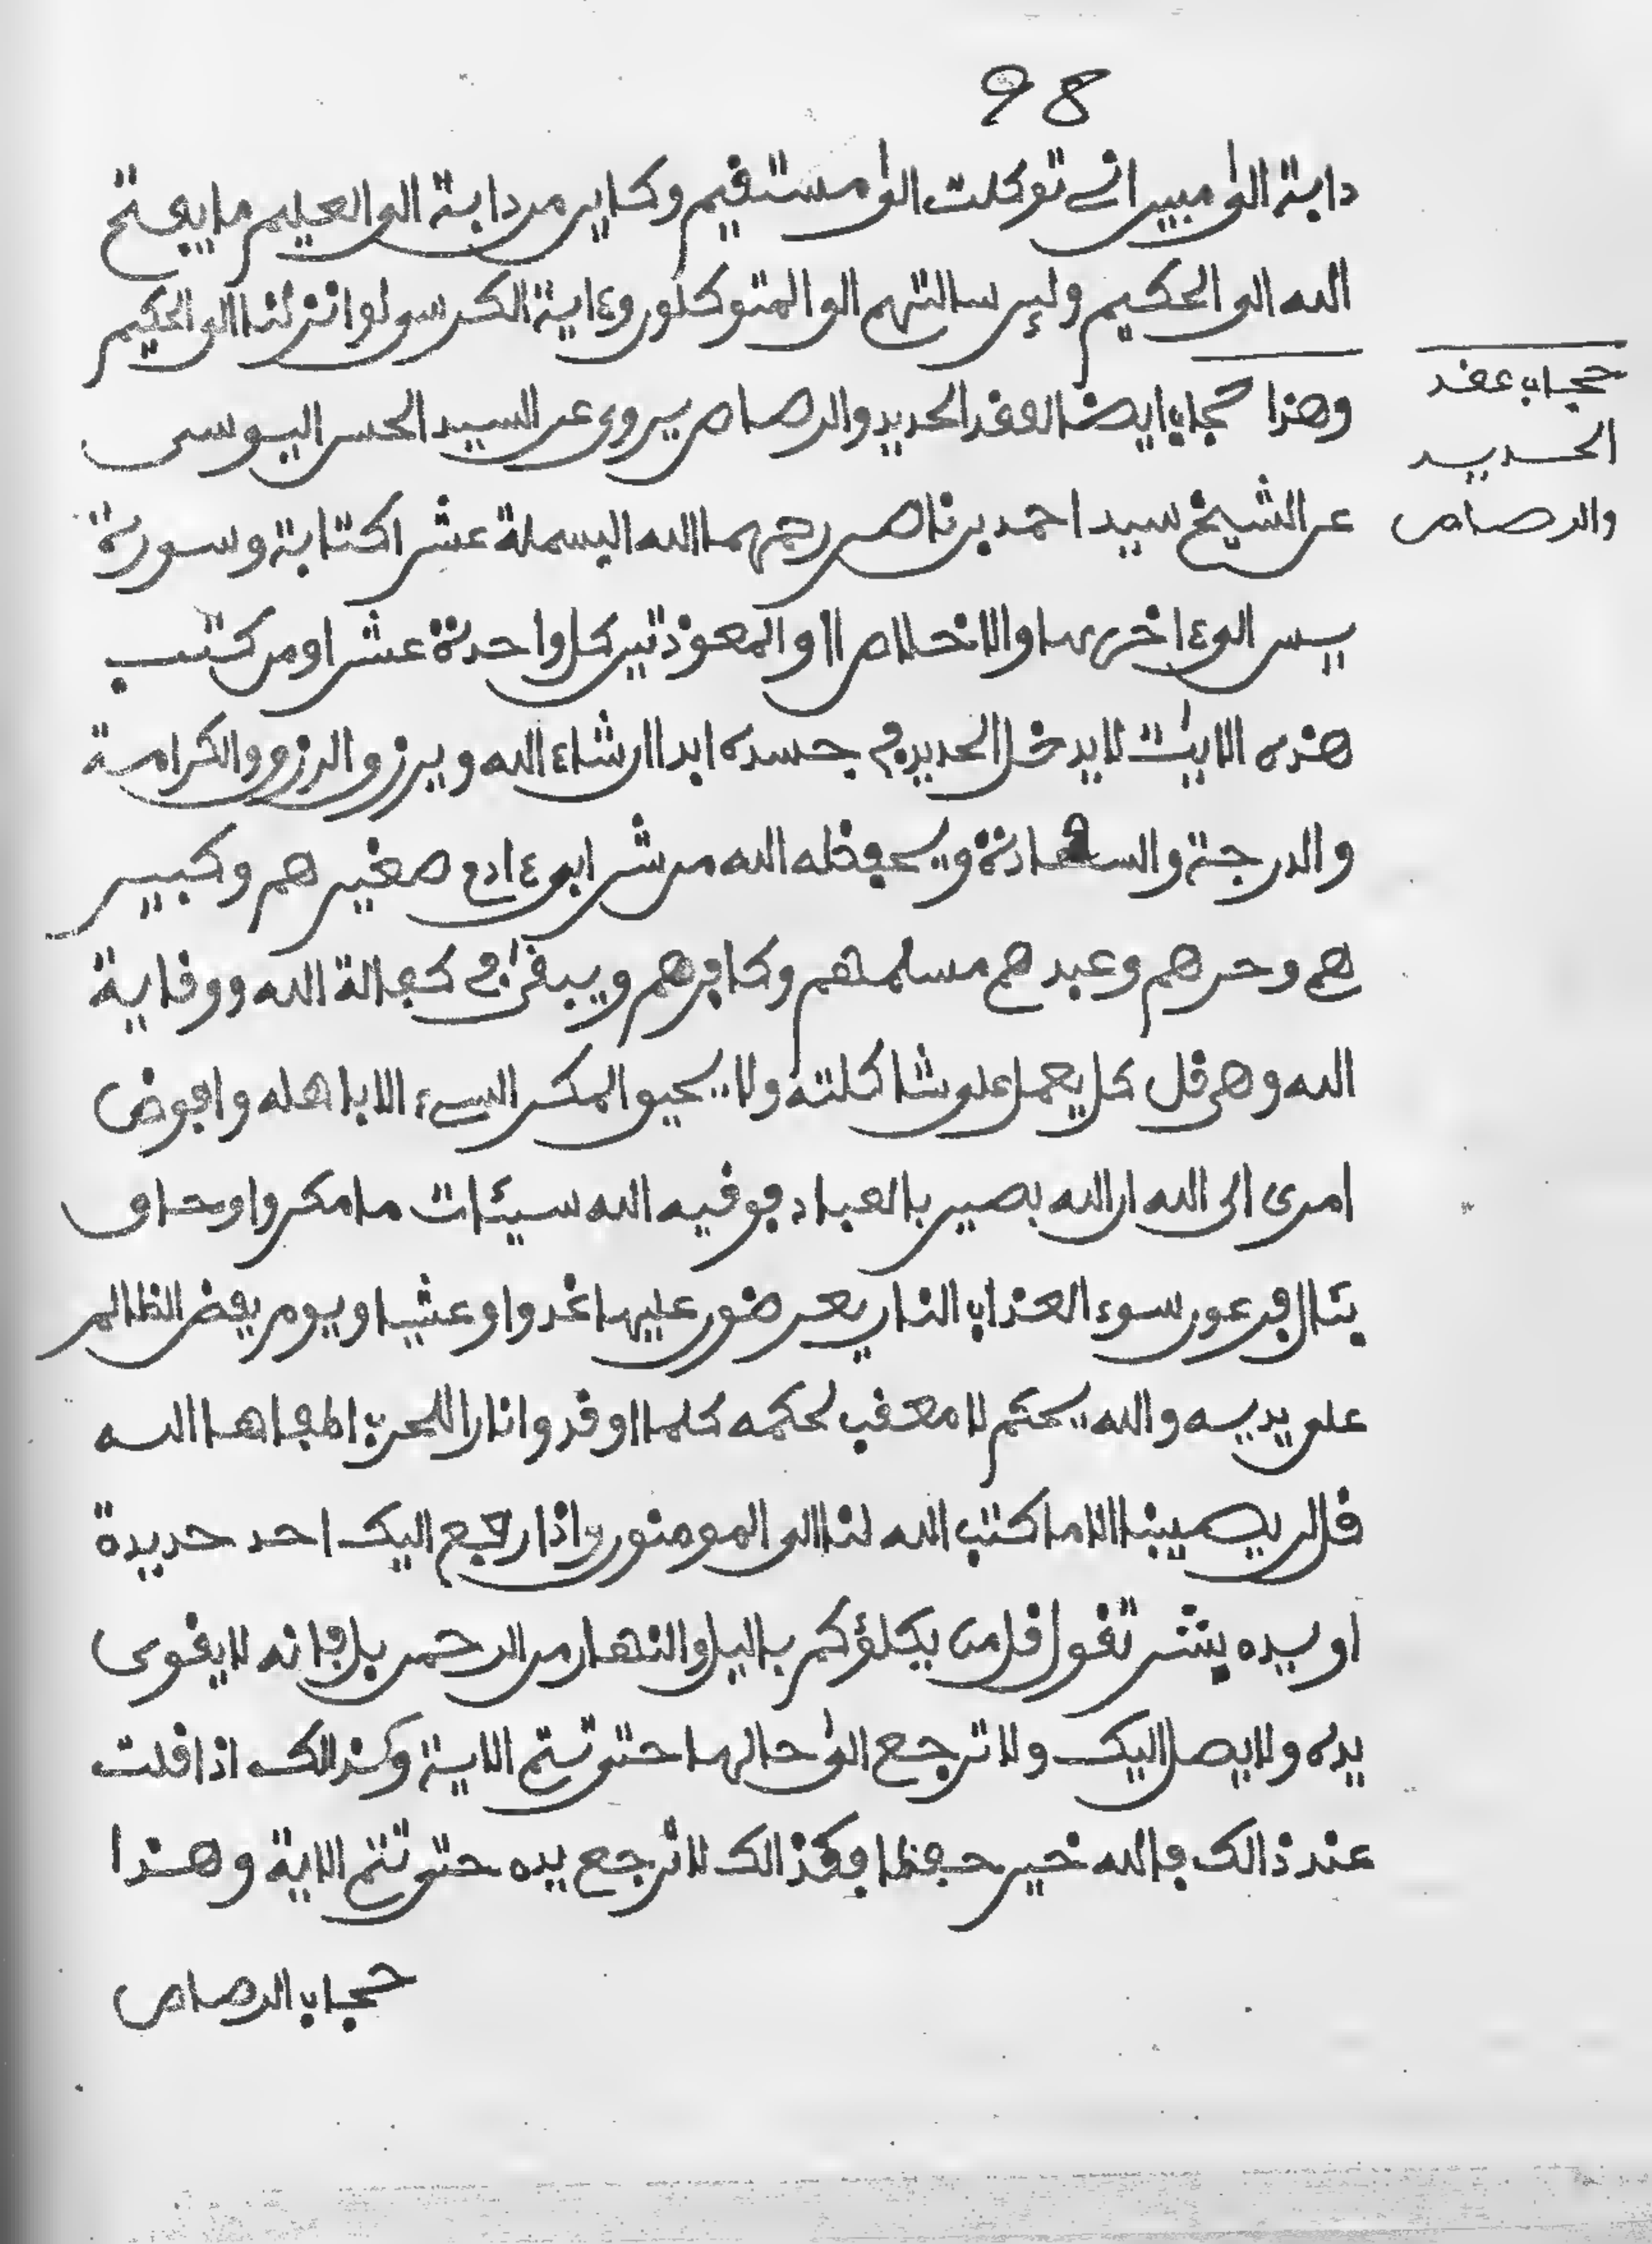 98
دابة الى مبين انى توكلت الى مستقيم وكاين من دابة الى العليم ما يفتح
الله الى الحكيم ولين سالتهم الى المتوكلون وءاية الكرسى لو انزلنا الى الحكيم
حجاب عقد
الحديد
والرصاص
وهذا حجاب ايضا لعقد الحديد والرصاص يروى عن السيد الحسن اليوسى
عن الشيخ سيد احمد بن ناصر رحمهما الله البسملة عشرا كتابة وسورة
يس الى ءاخرها والاخلاص ١١ والمعوذتين كل واحدة عشرا ومن كتب
هذه الايت لا يدخل الحديد في جسده ابدا ان شاء الله ويرزق الرزق والكرامة
والدرجة والسعادة ويحفظه الله من شر ابن ءادم صغيرهم وكبير
هم وحرهم وعبدهم مسلمهم وكافرهم ويبقى في كفالة الله ووقاية
الله وهى قل كل يعمل على شاكلته ولا يحيق المكر السيء الا باهله وافوض
امرى الى الله ان الله بصير بالعباد فوقيه الله سيئات ما مكروا وحاق
بئال فرعون سوء العذاب النار يعرضون عليها غدوا وعشيا ويوم يعض الظالم
على يديه والله يحكم لا معقب لحكمه كلما اوقدوا نارا للحرب اطفاها الله
قل لن يصيبنا الا ما كتب الله لنا الى المومنون واذا رفع اليك احد حديدة
او يده بشر تقول قل من يكلؤكم باليل والنهار من الرحمن بل فانه لا يقوى
يده ولا يصل اليك ولا ترجع الى حالها حتى تتم الاية وكذالك اذا قلت
عند ذالك فالله خير حفظا فكذالك لا ترجع يده حتى تتم الاية وهذا
حجاب الرصاص